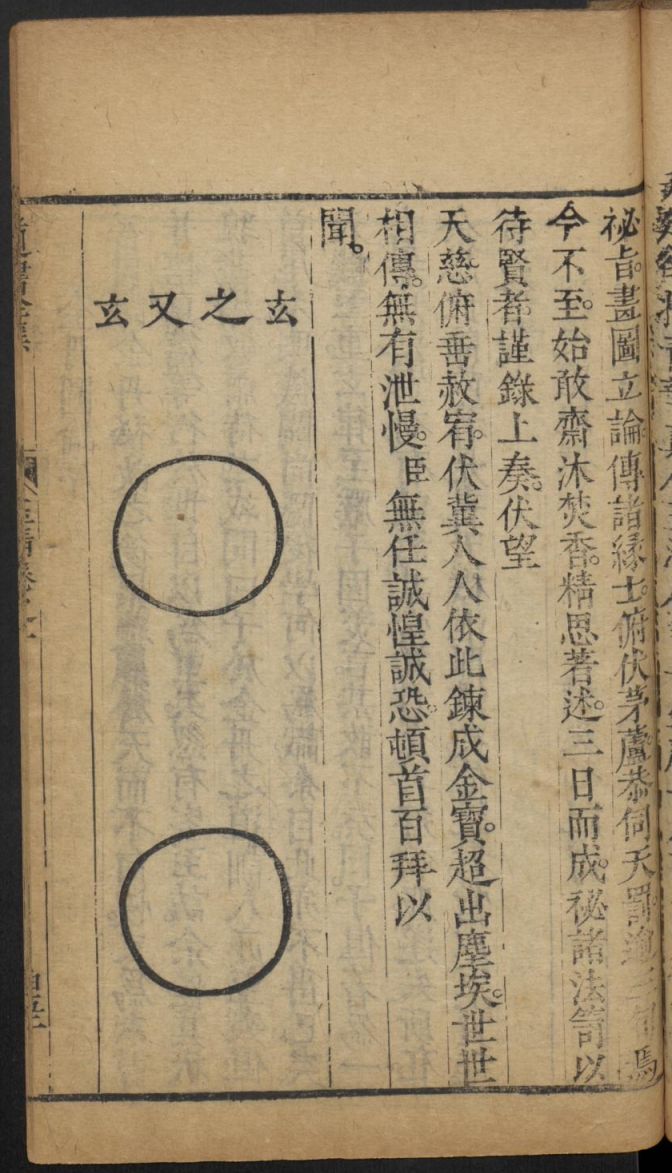 祕旨。畫圖立論。傳諸緣士。俯伏茅蘆。恭伺天罰。
今不至。始敢齋沐焚香。精思著述。三日而成。祕諸法笥以
待賢者。謹錄上奏。伏望
天慈俯垂赦宥。伏冀人人依此鍊成金寶。超出塵埃。世世
相傳。無有泄慢。臣無任誠惶誠恐。頓首百拜以
聞。
玄之又玄
道書全集